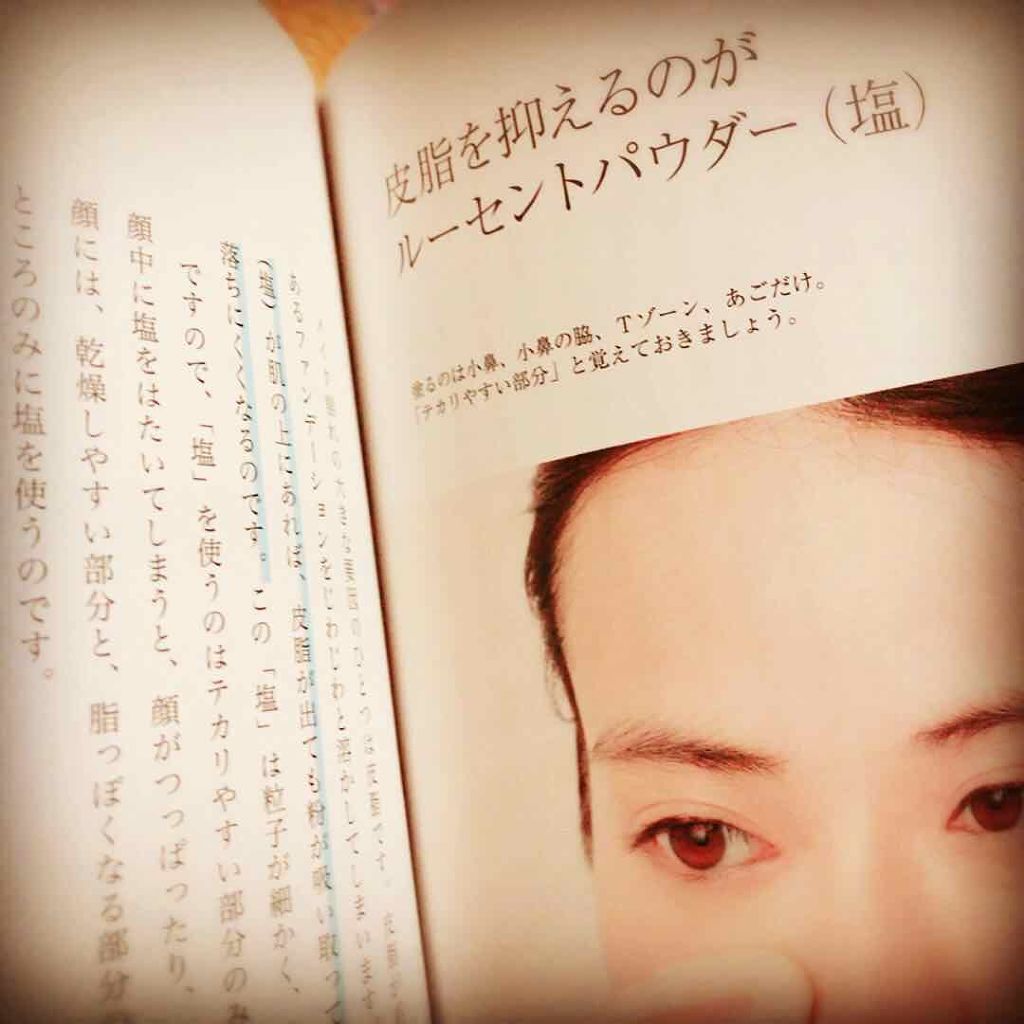 皮脂を抑えるのが
ルーセントパウダー（塩）
塗るのは小鼻、小鼻の脇、Tゾーン、あごだけ。
「テカリやすい部分」と覚えておきましょう。
あるファンデーションをじわじわと溶かしてしまいます
（塩）が肌の上にあれば、皮脂が出ても粉が吸い取って
落ちにくくなるのです。この「塩」は粒子が細かく、
ですので、「塩」を使うのはテカリやすい部分のみ
顔中に塩をはたいてしまうと、顔がつっぱったり、
顔には、乾燥しやすい部分と、脂っぽくなる部分の
ところのみに塩を使うのです。